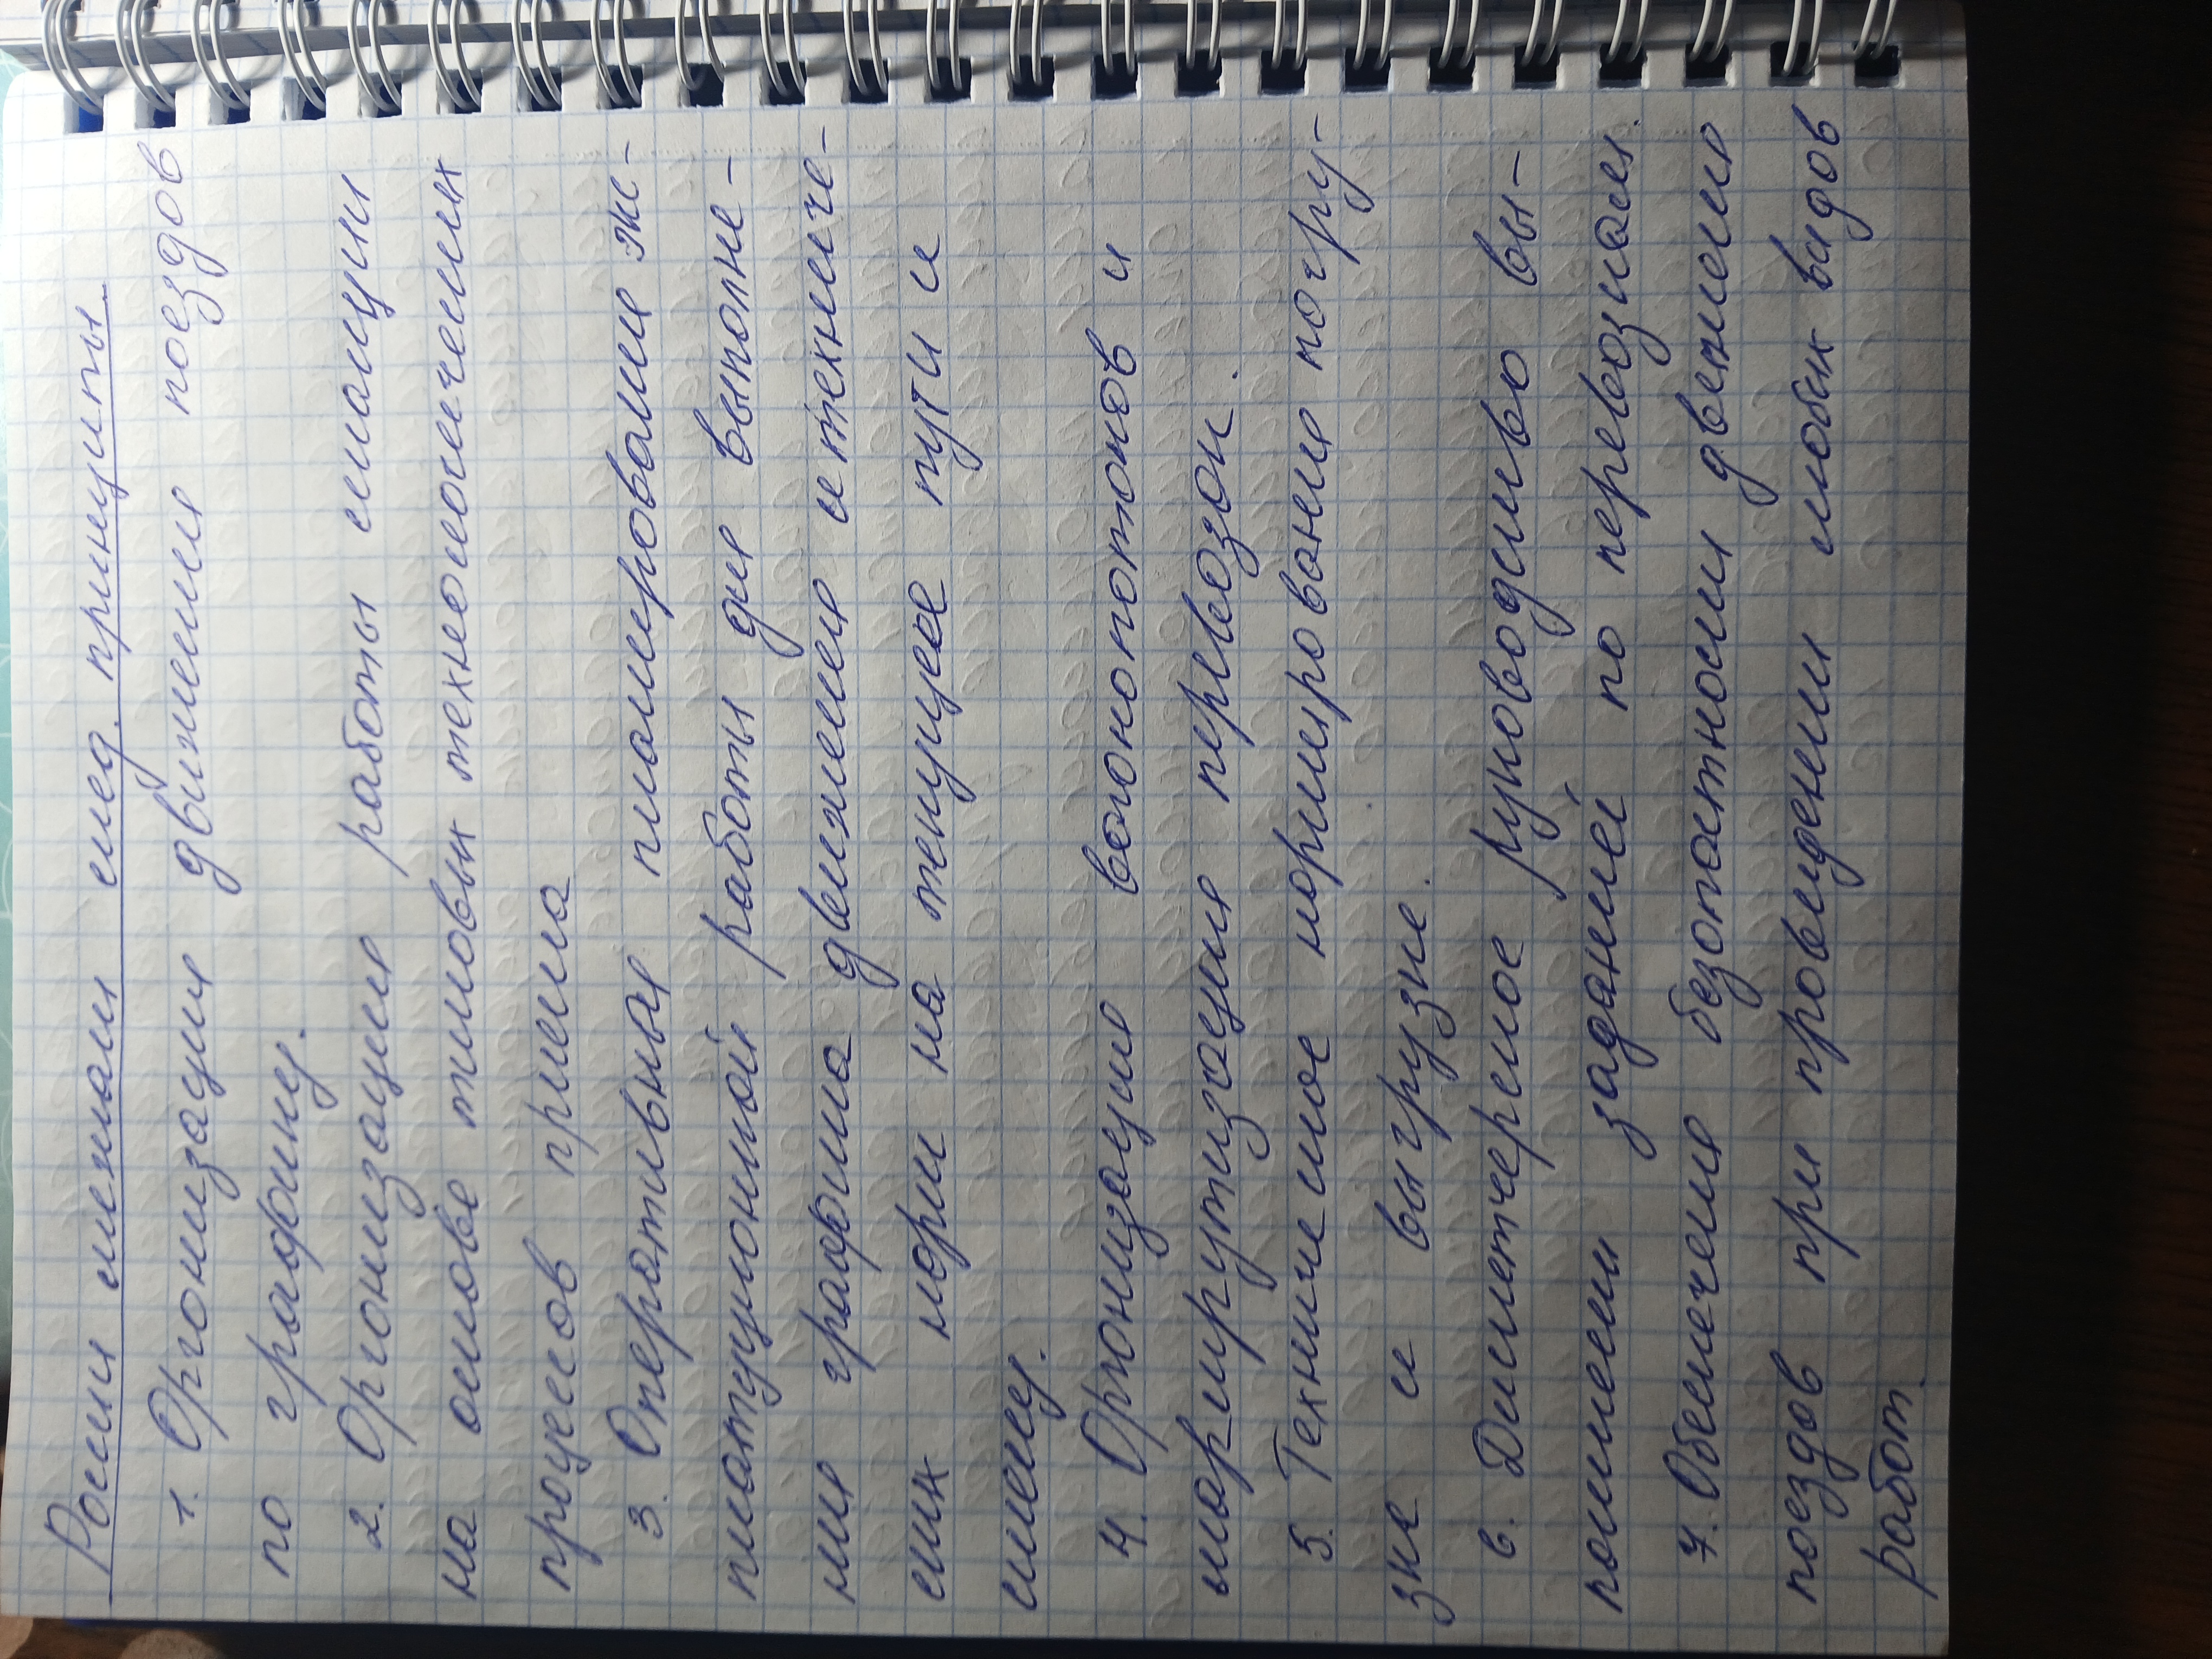 России лежат след. принципы
1. Организация движения поездов
по графику.
2. Организация работы станции
на основе типовых технологических
процессов
3. Оперативные планирования экс-
платуционной работы для выполне-
ния графика движения и техниче-
ских норм на текущее пути и
смену.
4. Организация вогонопотоков и
маршрутизация перевозок.
5. Техническое нормирования погру-
зке и выгрузке.
6. Диспетчерское руководство вы-
полнением заданией по перевозкам.
7. Обеспечения безопастности движения
поездов при проведении любых видов
работ.